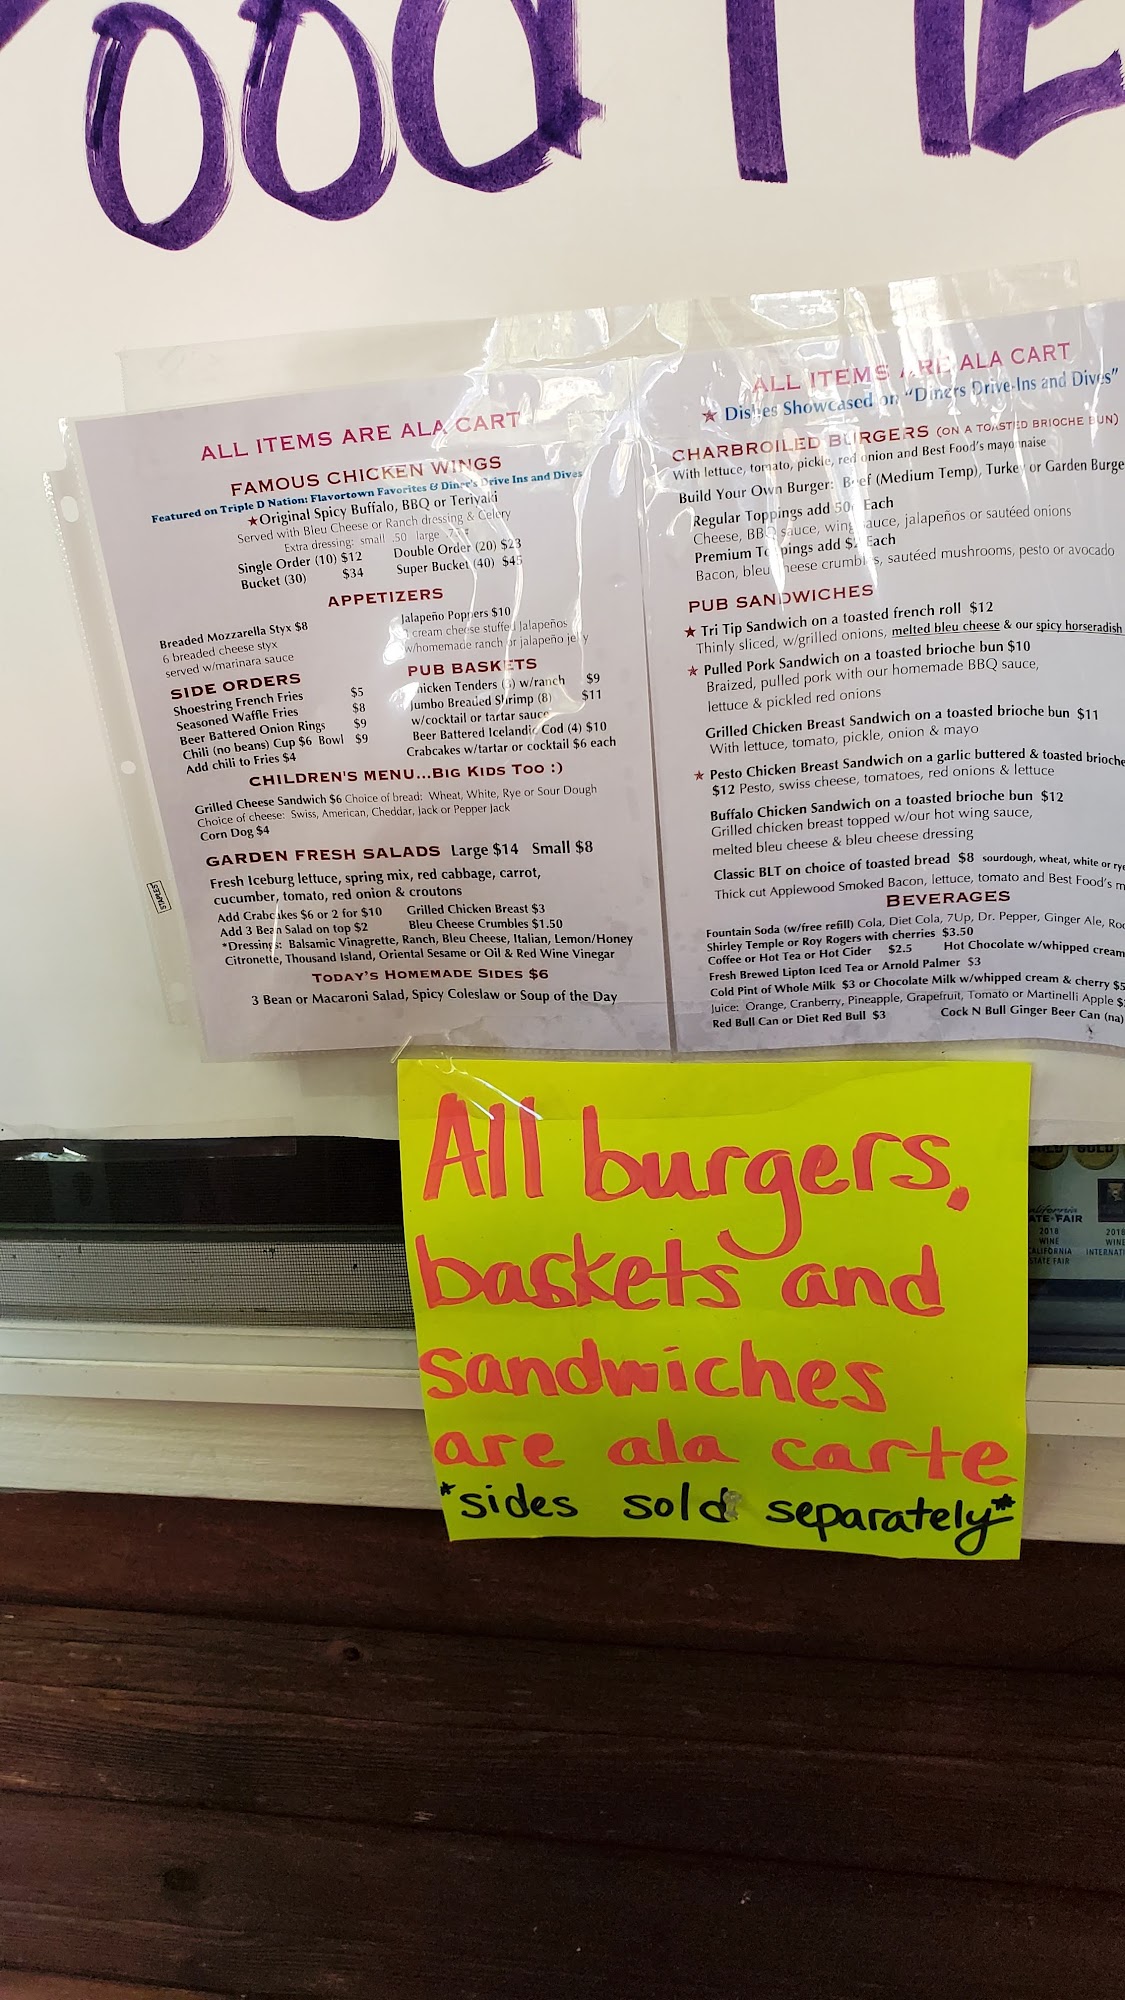 ALL ITEMS ARE ALA CART
FAMOUS CHICKEN WINGS
Featured on Triple D Nation: Flavortown Favorites & Diner's Drive Ins and Dives
★Original Spicy Buffalo, BBQ or Teriyaki
Served with Bleu Cheese or Ranch dressing & Celery
Extra dressing: small .50 large
Single Order (10) $12 Double Order (20) $23
Bucket (30) $34 Super Bucket (40) $45
APPETIZERS
Breaded Mozzarella Styx $8
6 breaded cheese styx
served w/marinara sauce
Jalapeño Poppers $10
cream cheese stuffed Jalapeños
w/homemade ranch or jalapeño jelly
SIDE ORDERS
Shoestring French Fries $5
Seasoned Waffle Fries $8
Beer Battered Onion Rings $9
Chili (no beans) Cup $6 Bowl $9
Add chili to Fries $4
PUB BASKETS
Chicken Tenders w/ranch $9
Jumbo Breaded Shrimp (8) $11
w/cocktail or tartar sauce
Beer Battered Icelandic Cod (4) $10
Crabcakes w/tartar or cocktail $6 each
CHILDREN'S MENU...BIG KIDS TOO :)
Grilled Cheese Sandwich $6 Choice of bread: Wheat, White, Rye or Sour Dough
Choice of cheese: Swiss, American, Cheddar, Jack or Pepper Jack
Corn Dog $4
GARDEN FRESH SALADS Large $14 Small $8
Fresh Iceburg lettuce, spring mix, red cabbage, carrot,
cucumber, tomato, red onion & croutons
Add Crabcakes $6 or 2 for $10 Grilled Chicken Breast $3
Add 3 Bean Salad on top $2 Bleu Cheese Crumbles $1.50
*Dressings: Balsamic Vinagrette, Ranch, Bleu Cheese, Italian, Lemon/Honey
Citronette, Thousand Island, Oriental Sesame or Oil & Red Wine Vinegar
TODAY'S HOMEMADE SIDES $6
3 Bean or Macaroni Salad, Spicy Coleslaw or Soup of the Day
ALL ITEMS ARE ALA CART
★ Dishes Showcased on "Diners Drive-Ins and Dives"
CHARBROILED BURGERS (ON A TOASTED BRIOCHE BUN)
With lettuce, tomato, pickle, red onion and Best Food's mayonnaise
Build Your Own Burger: Beef (Medium Temp), Turkey or Garden Burge
Regular Toppings add 50¢ Each
Cheese, BBQ sauce, wing sauce, jalapeños or sautéed onions
Premium Toppings add $2 Each
Bacon, bleu cheese crumbles, sautéed mushrooms, pesto or avocado
PUB SANDWICHES
★ Tri Tip Sandwich on a toasted french roll $12
Thinly sliced, w/grilled onions, melted bleu cheese & our spicy horseradish
★ Pulled Pork Sandwich on a toasted brioche bun $10
Braized, pulled pork with our homemade BBQ sauce,
lettuce & pickled red onions
Grilled Chicken Breast Sandwich on a toasted brioche bun $11
With lettuce, tomato, pickle, onion & mayo
★ Pesto Chicken Breast Sandwich on a garlic buttered & toasted brioche
$12 Pesto, swiss cheese, tomatoes, red onions & lettuce
Buffalo Chicken Sandwich on a toasted brioche bun $12
Grilled chicken breast topped w/our hot wing sauce,
melted bleu cheese & bleu cheese dressing
Classic BLT on choice of toasted bread $8 sourdough, wheat, white or rye
Thick cut Applewood Smoked Bacon, lettuce, tomato and Best Food's m
BEVERAGES
Fountain Soda (w/free refill) Cola, Diet Cola, 7Up, Dr. Pepper, Ginger Ale, Roo
Shirley Temple or Roy Rogers with cherries $3.50
Coffee or Hot Tea or Hot Cider $2.5 Hot Chocolate w/whipped cream
Fresh Brewed Lipton Iced Tea or Arnold Palmer $3
Cold Pint of Whole Milk $3 or Chocolate Milk w/whipped cream & cherry $5
Juice: Orange, Cranberry, Pineapple, Grapefruit, Tomato or Martinelli Apple $
Red Bull Can or Diet Red Bull $3 Cock N Bull Ginger Beer Can (na)
STAPLES
All burgers,
baskets and
sandwiches
are ala carte
*sides sold separately*
GOLD
2018
WINE
CALIFORNIA
STATE FAIR
2018
WINE
INTERNATI